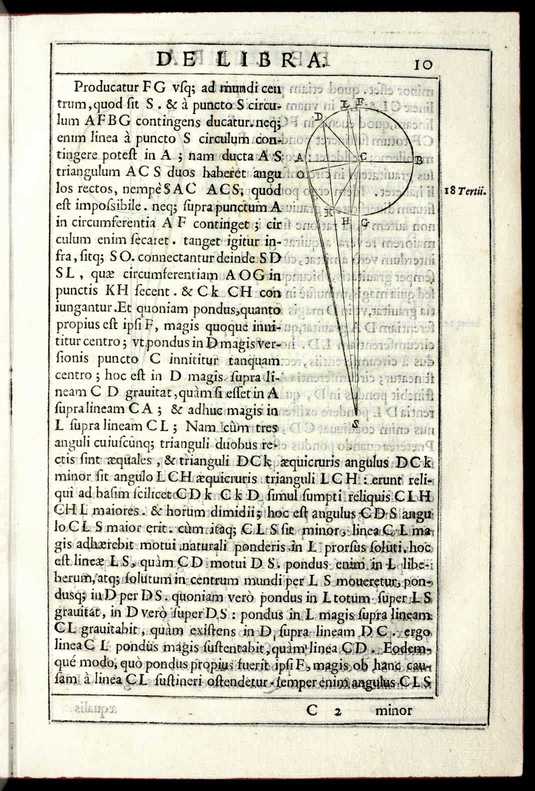 DE LIBRA. 10
Producatur FG vsq; ad mundi cen
trum, quod sit S. & à puncto S circu-
lum AFBG contingens ducatur. neq;
enim linea à puncto S circulum con-
tingere potest in A; nam ducta AS
triangulum ACS duos haberet angu
los rectos, nempè SAC ACS, quod
est impossibile. neq; supra punctum A
in circumferentia AF continget; cir
culum enim secaret. tanget igitur in-
fra, sitq; SO. connectantur deinde SD
SL, quæ circumferentiam AOG in
punctis KH secent. & Ck CH con
iungantur. Et quoniam pondus, quanto
propius est ipsi F, magis quoque inni-
titur centro; vt pondus in D magis ver-
sionis puncto C innititur tanquam
centro; hoc est in D magis supra li-
neam CD grauitat, quàm si esset in A
supra lineam CA; & adhuc magis in
L supra lineam CL; Nam cùm tres
anguli cuiuscúnq; trianguli duobus re-
ctis sint æquales, & trianguli DCk æquicruris angulus DCk
minor sit angulo LCH æquicruris trianguli LCH: erunt reli-
qui ad basim scilicet CDk CkD simul sumpti reliquis CLH
CHL maiores. & horum dimidii; hoc est angulus CDS angu
lo CLS maior erit. cùm itaq; CLS sit minor, linea CL ma
gis adhærebit motui naturali ponderis in L prorsus soluti. hoc
est lineæ LS, quàm CD motui DS. pondus enim in L libe-
herum, atq; solutum in centrum mundi per LS moueretur, pon-
dusq; in D per DS. quoniam verò pondus in L totum super LS
grauitat, in D verò super DS: pondus in L magis supra lineam
CL grauitabit, quàm existens in D, supra lineam DC. ergo
linea CL pondus magis sustentabit, quàm linea CD. Eodem-
qué modo, quò pondus propius fuerit ipsi F, magis ob hanc cau-
sam à linea CL sustineri ostendetur. semper enim angulus CLS
C 2 minor
18 Tertii.
L F
D
A C B
O
K H G
S